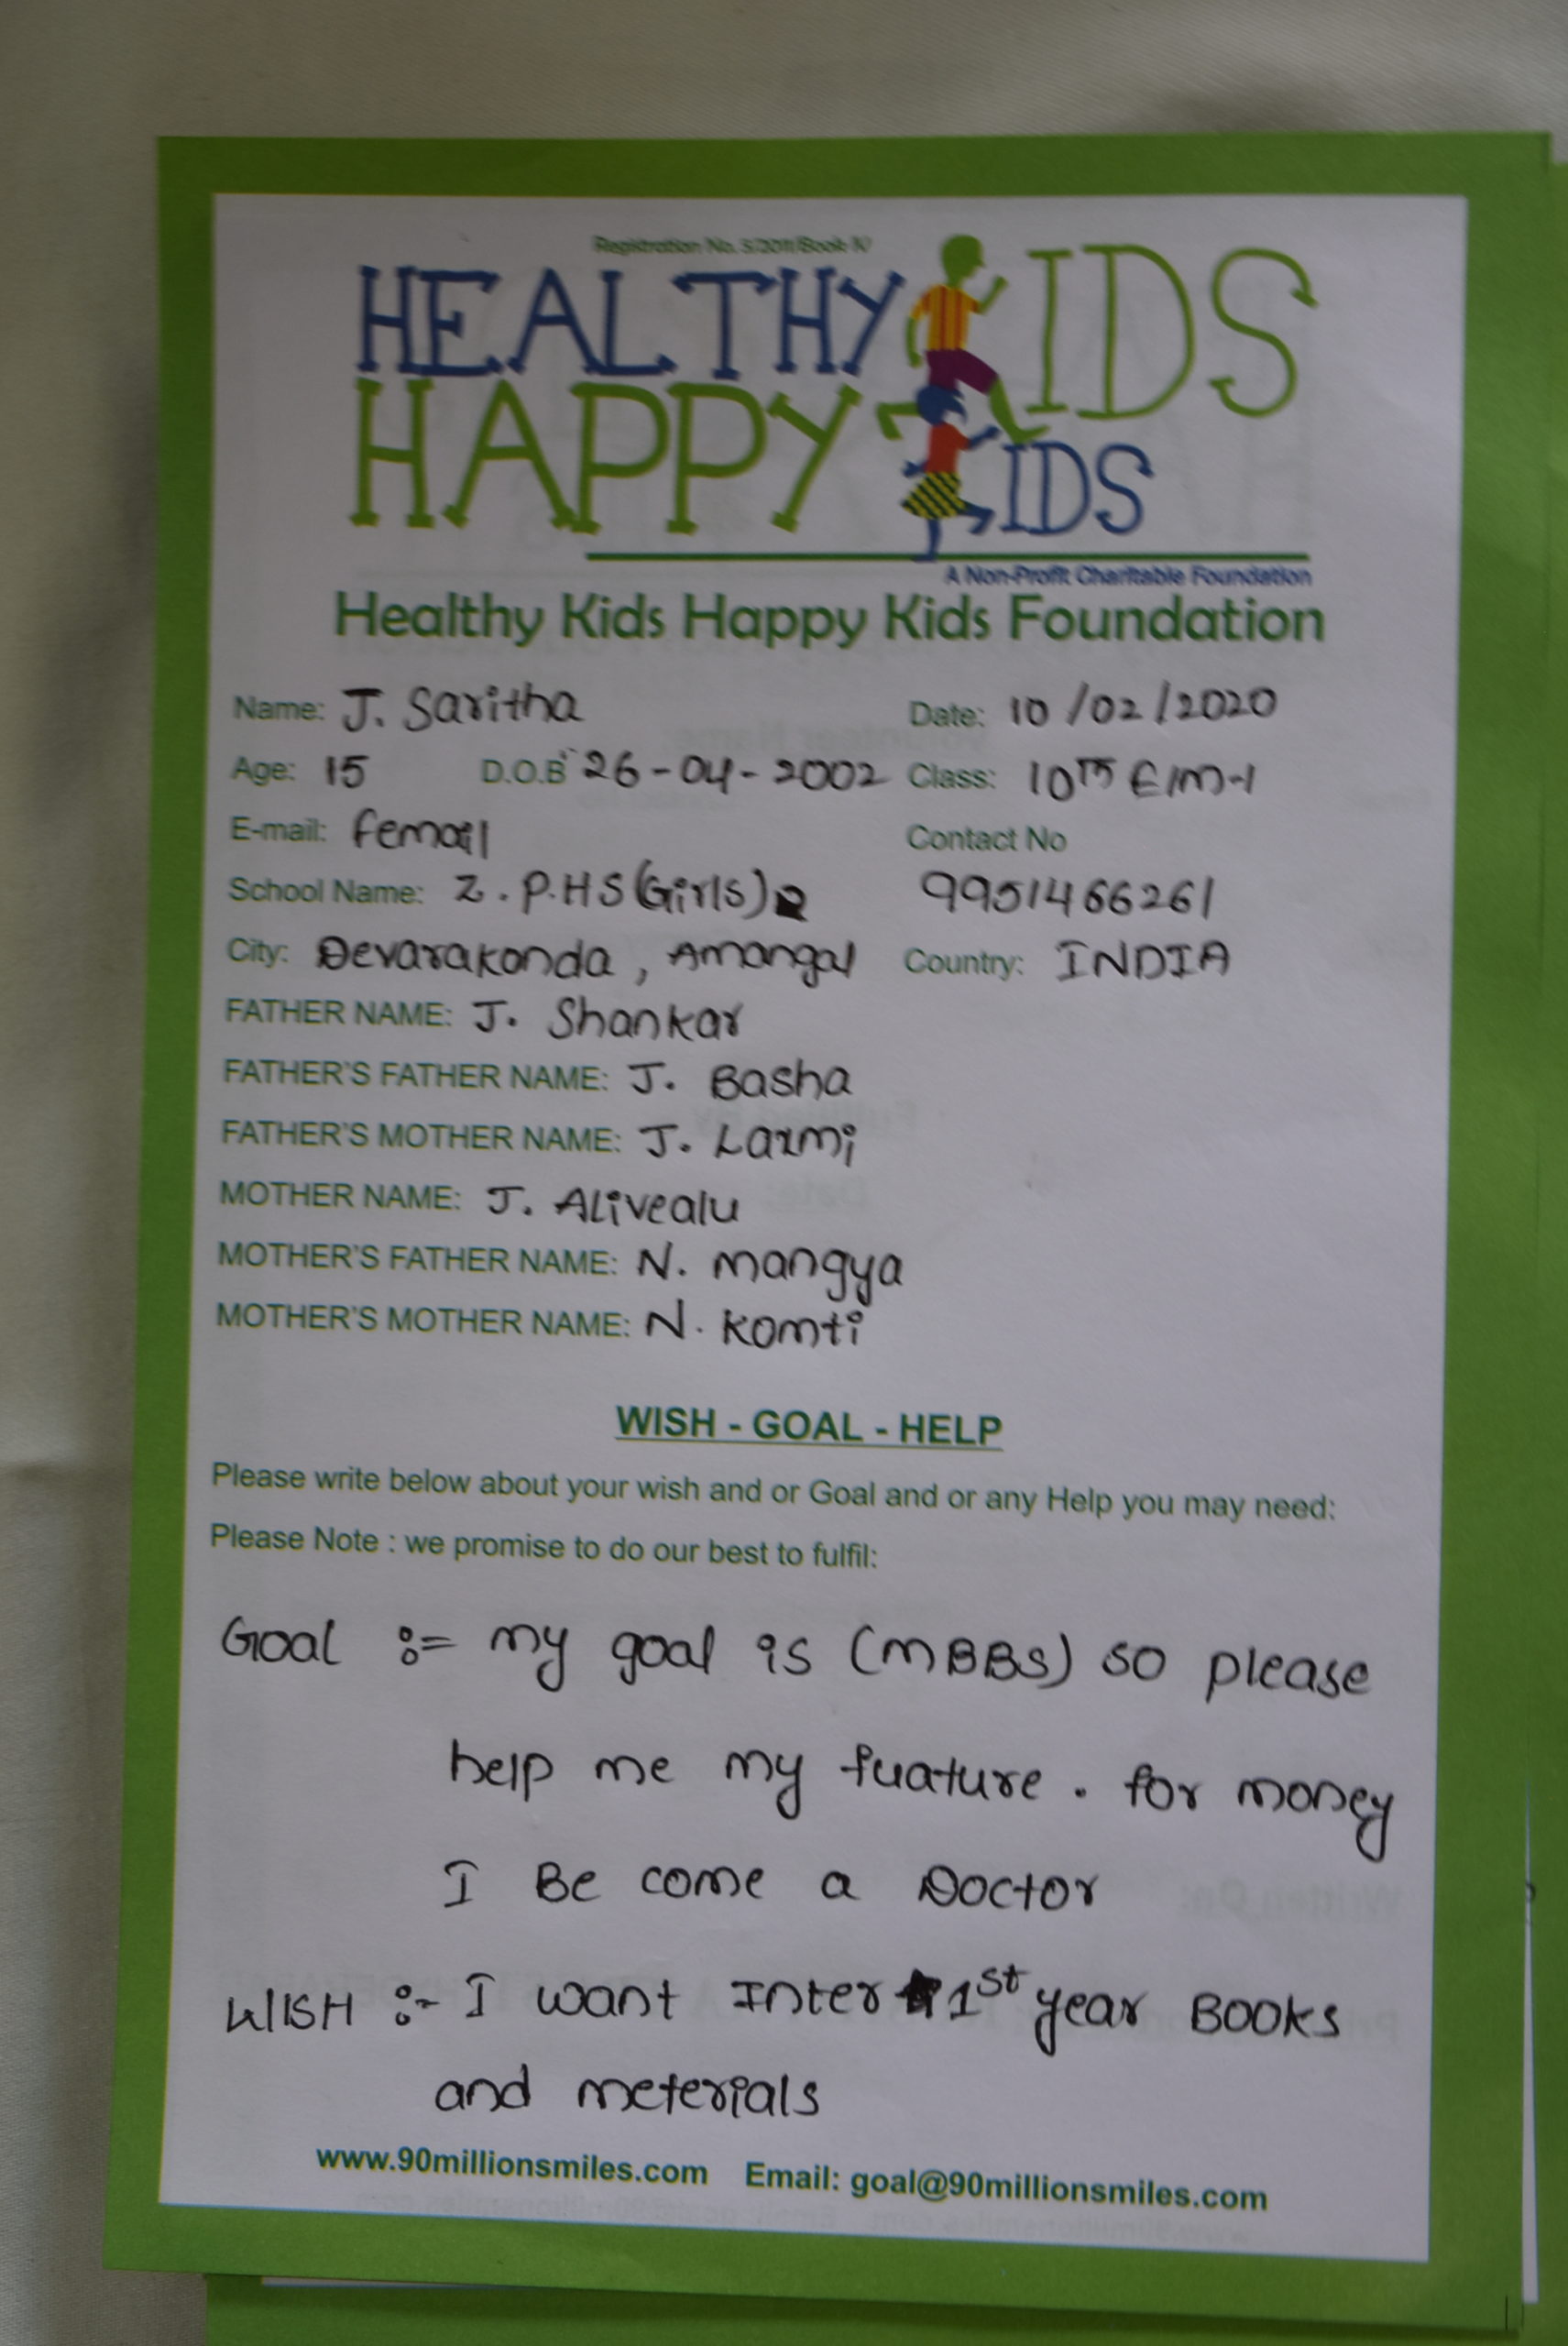 Registration No. 5/2011/Book IV
HEALTHY KIDS
HAPPY KIDS
A Non-Profit Charitable Foundation
Healthy Kids Happy Kids Foundation
Name: J. Saritha Date: 10/02/2020
Age: 15 D.O.B 26-04-2002 Class: 10th E/M-1
E-mail: femail Contact No
School Name: Z.P.HS (Girls) 9951466261
City: Devarakonda, Amangal Country: INDIA
FATHER NAME: J. Shankar
FATHER'S FATHER NAME: J. Basha
FATHER'S MOTHER NAME: J. Laxmi
MOTHER NAME: J. Alivealu
MOTHER'S FATHER NAME: N. mangya
MOTHER'S MOTHER NAME: N. Komti
WISH - GOAL - HELP
Please write below about your wish and or Goal and or any Help you may need:
Please Note : we promise to do our best to fulfil:
Goal :- my goal is (MBBS) so please
help me my fuature. for money
I Be come a Doctor
WISH :- I want Inter 1st year Books
and meterials
www.90millionsmiles.com Email: goal@90millionsmiles.com